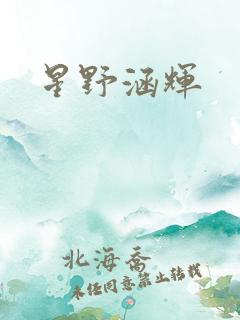 星野涵輝
北海喬
未经同意禁止转载